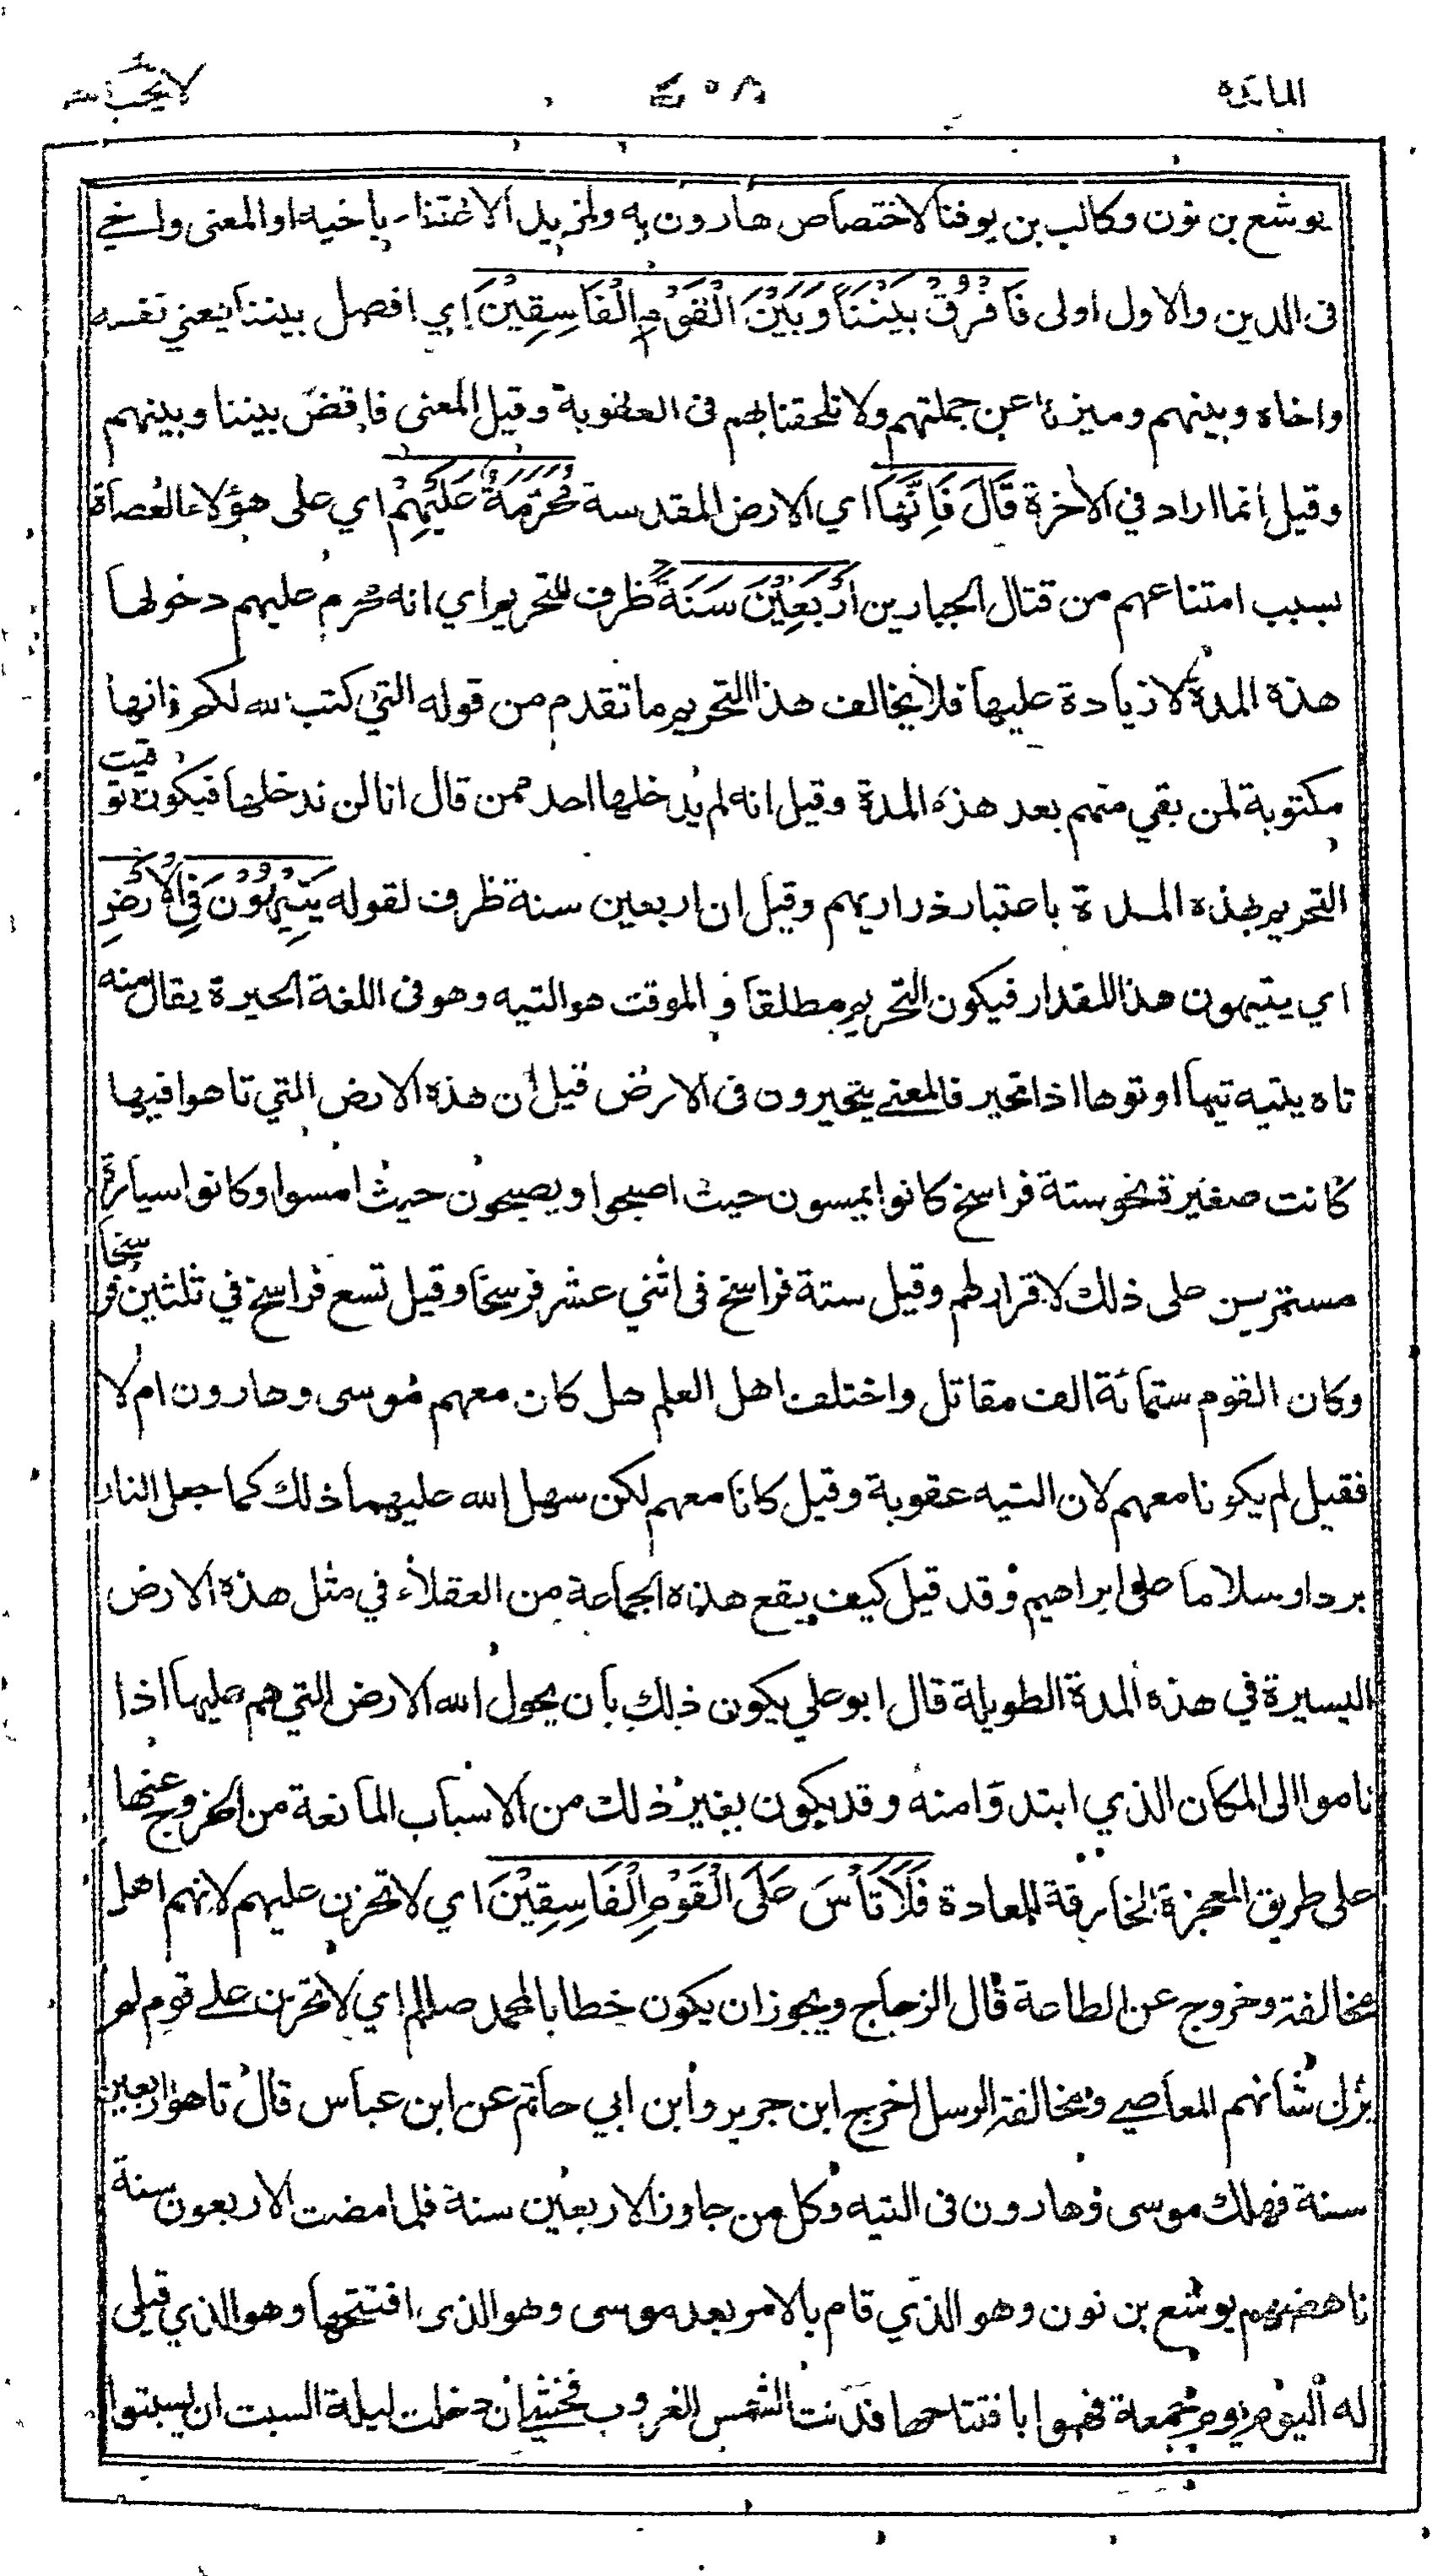 المائدة ٤٠٨ لا يحب الله
يوشع بن نون وكالب بن يوفنا لاختصاص هارون به ولمزيد الاعتناء بأخيه او المعنى واخي
فى الدين والاول اولى فَافْرُقْ بَيْنَنَا وَبَيْنَ الْقَوْمِ الْفَاسِقِيْنَ اي افصل بيننا يعني نفسه
واخاه وبينهم وميزنا عن جملتهم ولا تلحقنا بهم فى العقوبة وقيل المعنى فاقض بيننا وبينهم
وقيل انما اراد في الاخرة قَالَ فَاِنَّهَا اي الارض المقدسة مُحَرَّمَةٌ عَلَيْهِمْ اي على هؤلاء العصاة
بسبب امتناعهم من قتال الجبارين اَرْبَعِيْنَ سَنَةً ظرف للتحريم اي انه محرم عليهم دخولها
هذه المدة لا زيادة عليها فلا يخالف هذا التحريم ما تقدم من قوله التي كتب الله لكم فانها
مكتوبة لمن بقي منهم بعد هذه المدة وقيل انه لم يدخلها احد ممن قال انا لن ندخلها فيكون توقيت
التحريم بهذه المدة باعتبار ذراريهم وقيل ان اربعين سنة ظرف لقوله يَتِيْهُوْنَ فِى الْاَرْضِ
اي يتيهون هذا المقدار فيكون التحريم مطلقا و الموقت هو التيه وهو فى اللغة الحيرة يقال منه
تاه يتيه تيها او توها اذا تحير فالمعنى يتحيرون فى الارض قيل ان هذه الارض التي تاهوا فيها
كانت صغيرة نحو ستة فراسخ كانوا يمسون حيث اصبحوا ويصبحون حيث امسوا وكانوا سيارة
مستمرين على ذلك لا قرار لهم وقيل ستة فراسخ فى اثني عشر فرسخا وقيل تسع فراسخ في ثلثين فرسخا
وكان القوم ستمائة الف مقاتل واختلف اهل العلم هل كان معهم موسى وهارون ام لا
فقيل لم يكونا معهم لان التيه عقوبة وقيل كانا معهم لكن سهل الله عليهما ذلك كما جعل النار
بردا وسلاما على ابراهيم وقد قيل كيف يقع هذه الجماعة من العقلاء في مثل هذه الارض
اليسيرة في هذه المدة الطويلة قال ابو علي يكون ذلك بان يحول الله الارض التي هم عليها اذا
ناموا الى المكان الذي ابتدوا منه وقد يكون بغير ذلك من الاسباب المانعة من الخروج عنها
على طريق المعجزة الخارقة للعادة فَلَا تَأْسَ عَلَى الْقَوْمِ الْفَاسِقِيْنَ اي لا تحزن عليهم لانهم اهل
مخالفة وخروج عن الطاعة قال الزجاج ويجوز ان يكون خطابا لمحمد صللم اي لا تحزن على قوم لم
يزل شانهم المعاصي ومخالفة الرسل اخرج ابن جرير وابن ابي حاتم عن ابن عباس قال تاهوا اربعين
سنة فهلك موسى وهارون فى التيه وكل من جاوز الاربعين سنة فلما مضت الاربعون سنة
ناهضهم يوشع بن نون وهو الذي قام بالامر بعد موسى وهو الذى افتتحها وهو الذي قيل
له اليوم يوم جمعة فهموا بافتتاحها فدنت الشمس للغروب فخشي ان دخلت ليلة السبت ان يسبتوا